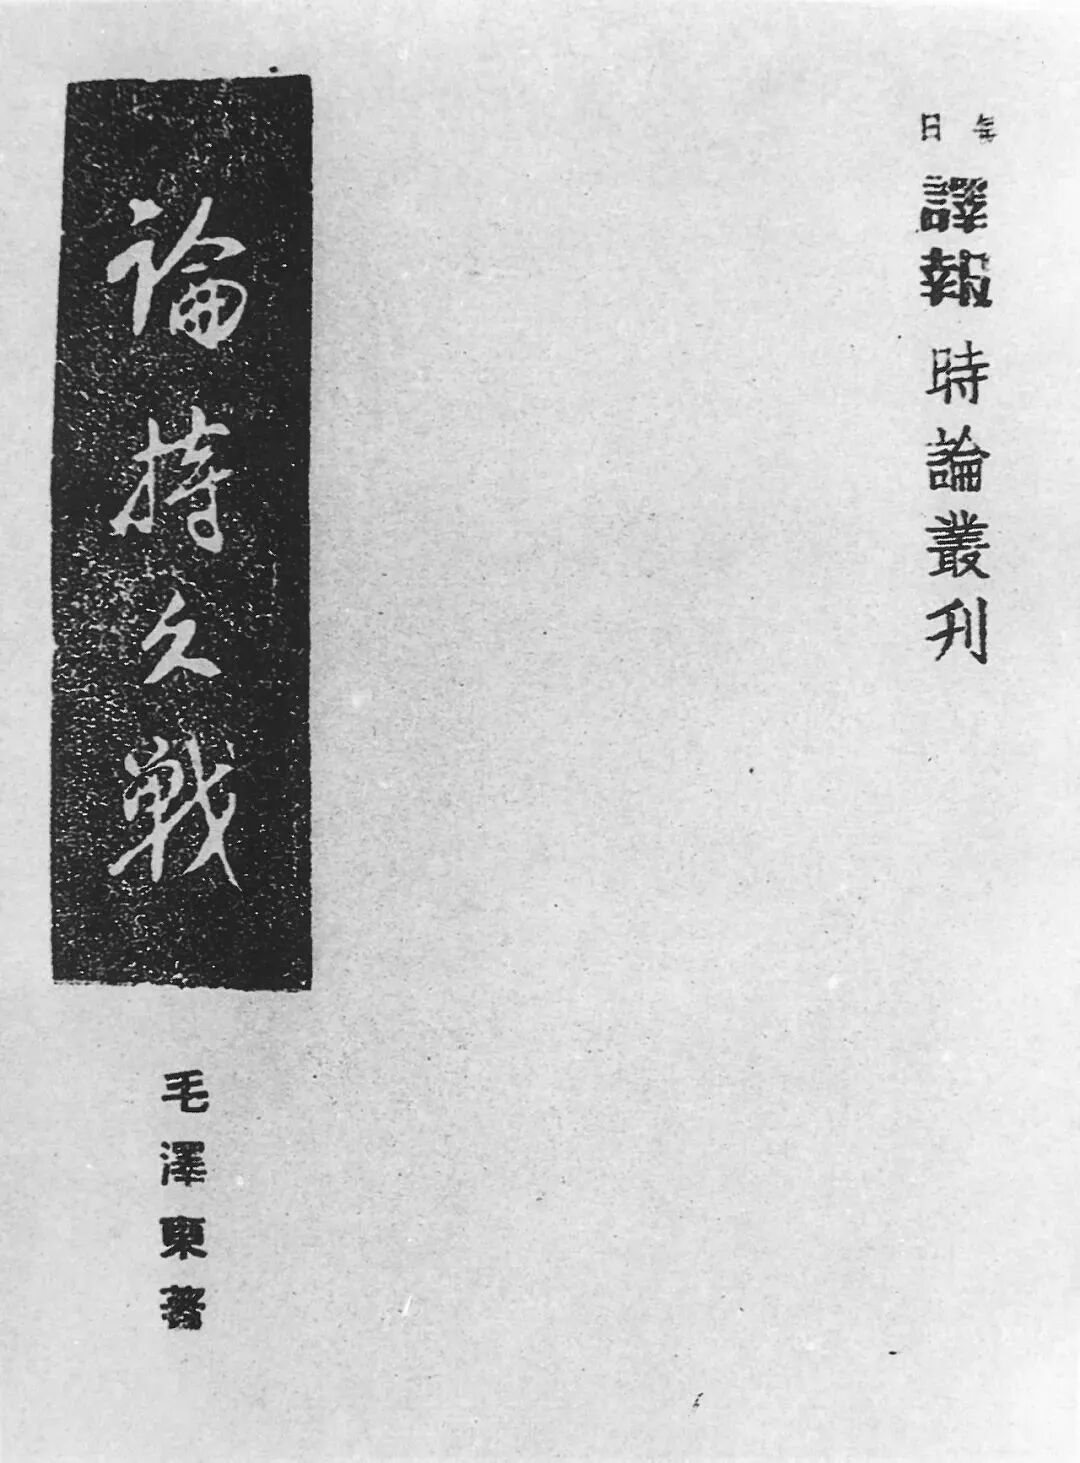 每日
譯報
時論叢刊
論持久戰
毛澤東著